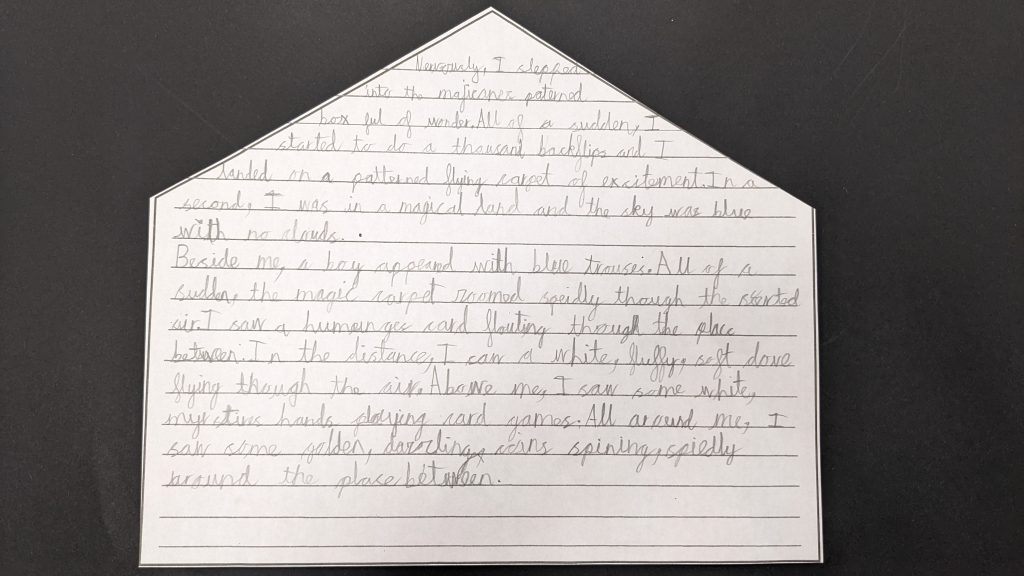 Nervously, I stepped
into the majicanes paterned
box ful of wonder. All of a sudden, I
started to do a thousand backflips and I
landed on a patterned flying carpet of excitement. In a
second, I was in a magical land and the sky was blue
with no clouds.
Beside me, a boy appeard with blue trouses. All of a
sudden, the magic carpet roomed speidly though the started
air. I saw a humeinges card floating through the place
between. In the distance, I saw a white, fluffy, soft dove
flying though the air. Above me, I saw some white,
myrstius hands playing card games. All around me, I
saw some golden, dazzling, coins spining, spiedly
around the place between.